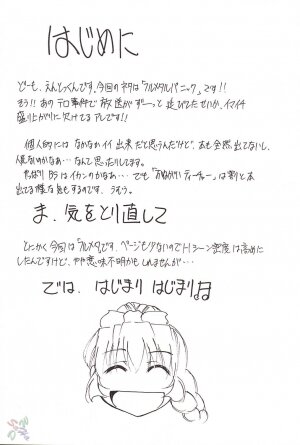 はじめに
どーも、えんとっくんです。今回のネタは「フルメタルパニック」です!!
そう!!あのテロ事件で放送がずーっと延びてたせいか、イマイチ
盛り上がりに欠けてるアレです!!
個人的には なかなかイイ出来だと思うんだけど、本も全然出てないし、
人気ないのかなぁ…なんて思ったりします。
やっぱり BSはイカンのかなぁ…でも「おねがいティーチャー」は割と本
出てる様な気もするのです、うもう。
ま、気をとり直して
とにかく今回は「フルメタ」です。ページも少ないのでHシーン密度は高めに
したんですけど、やや意味不明かもしれませんが…
では、はじまり はじまりぃ